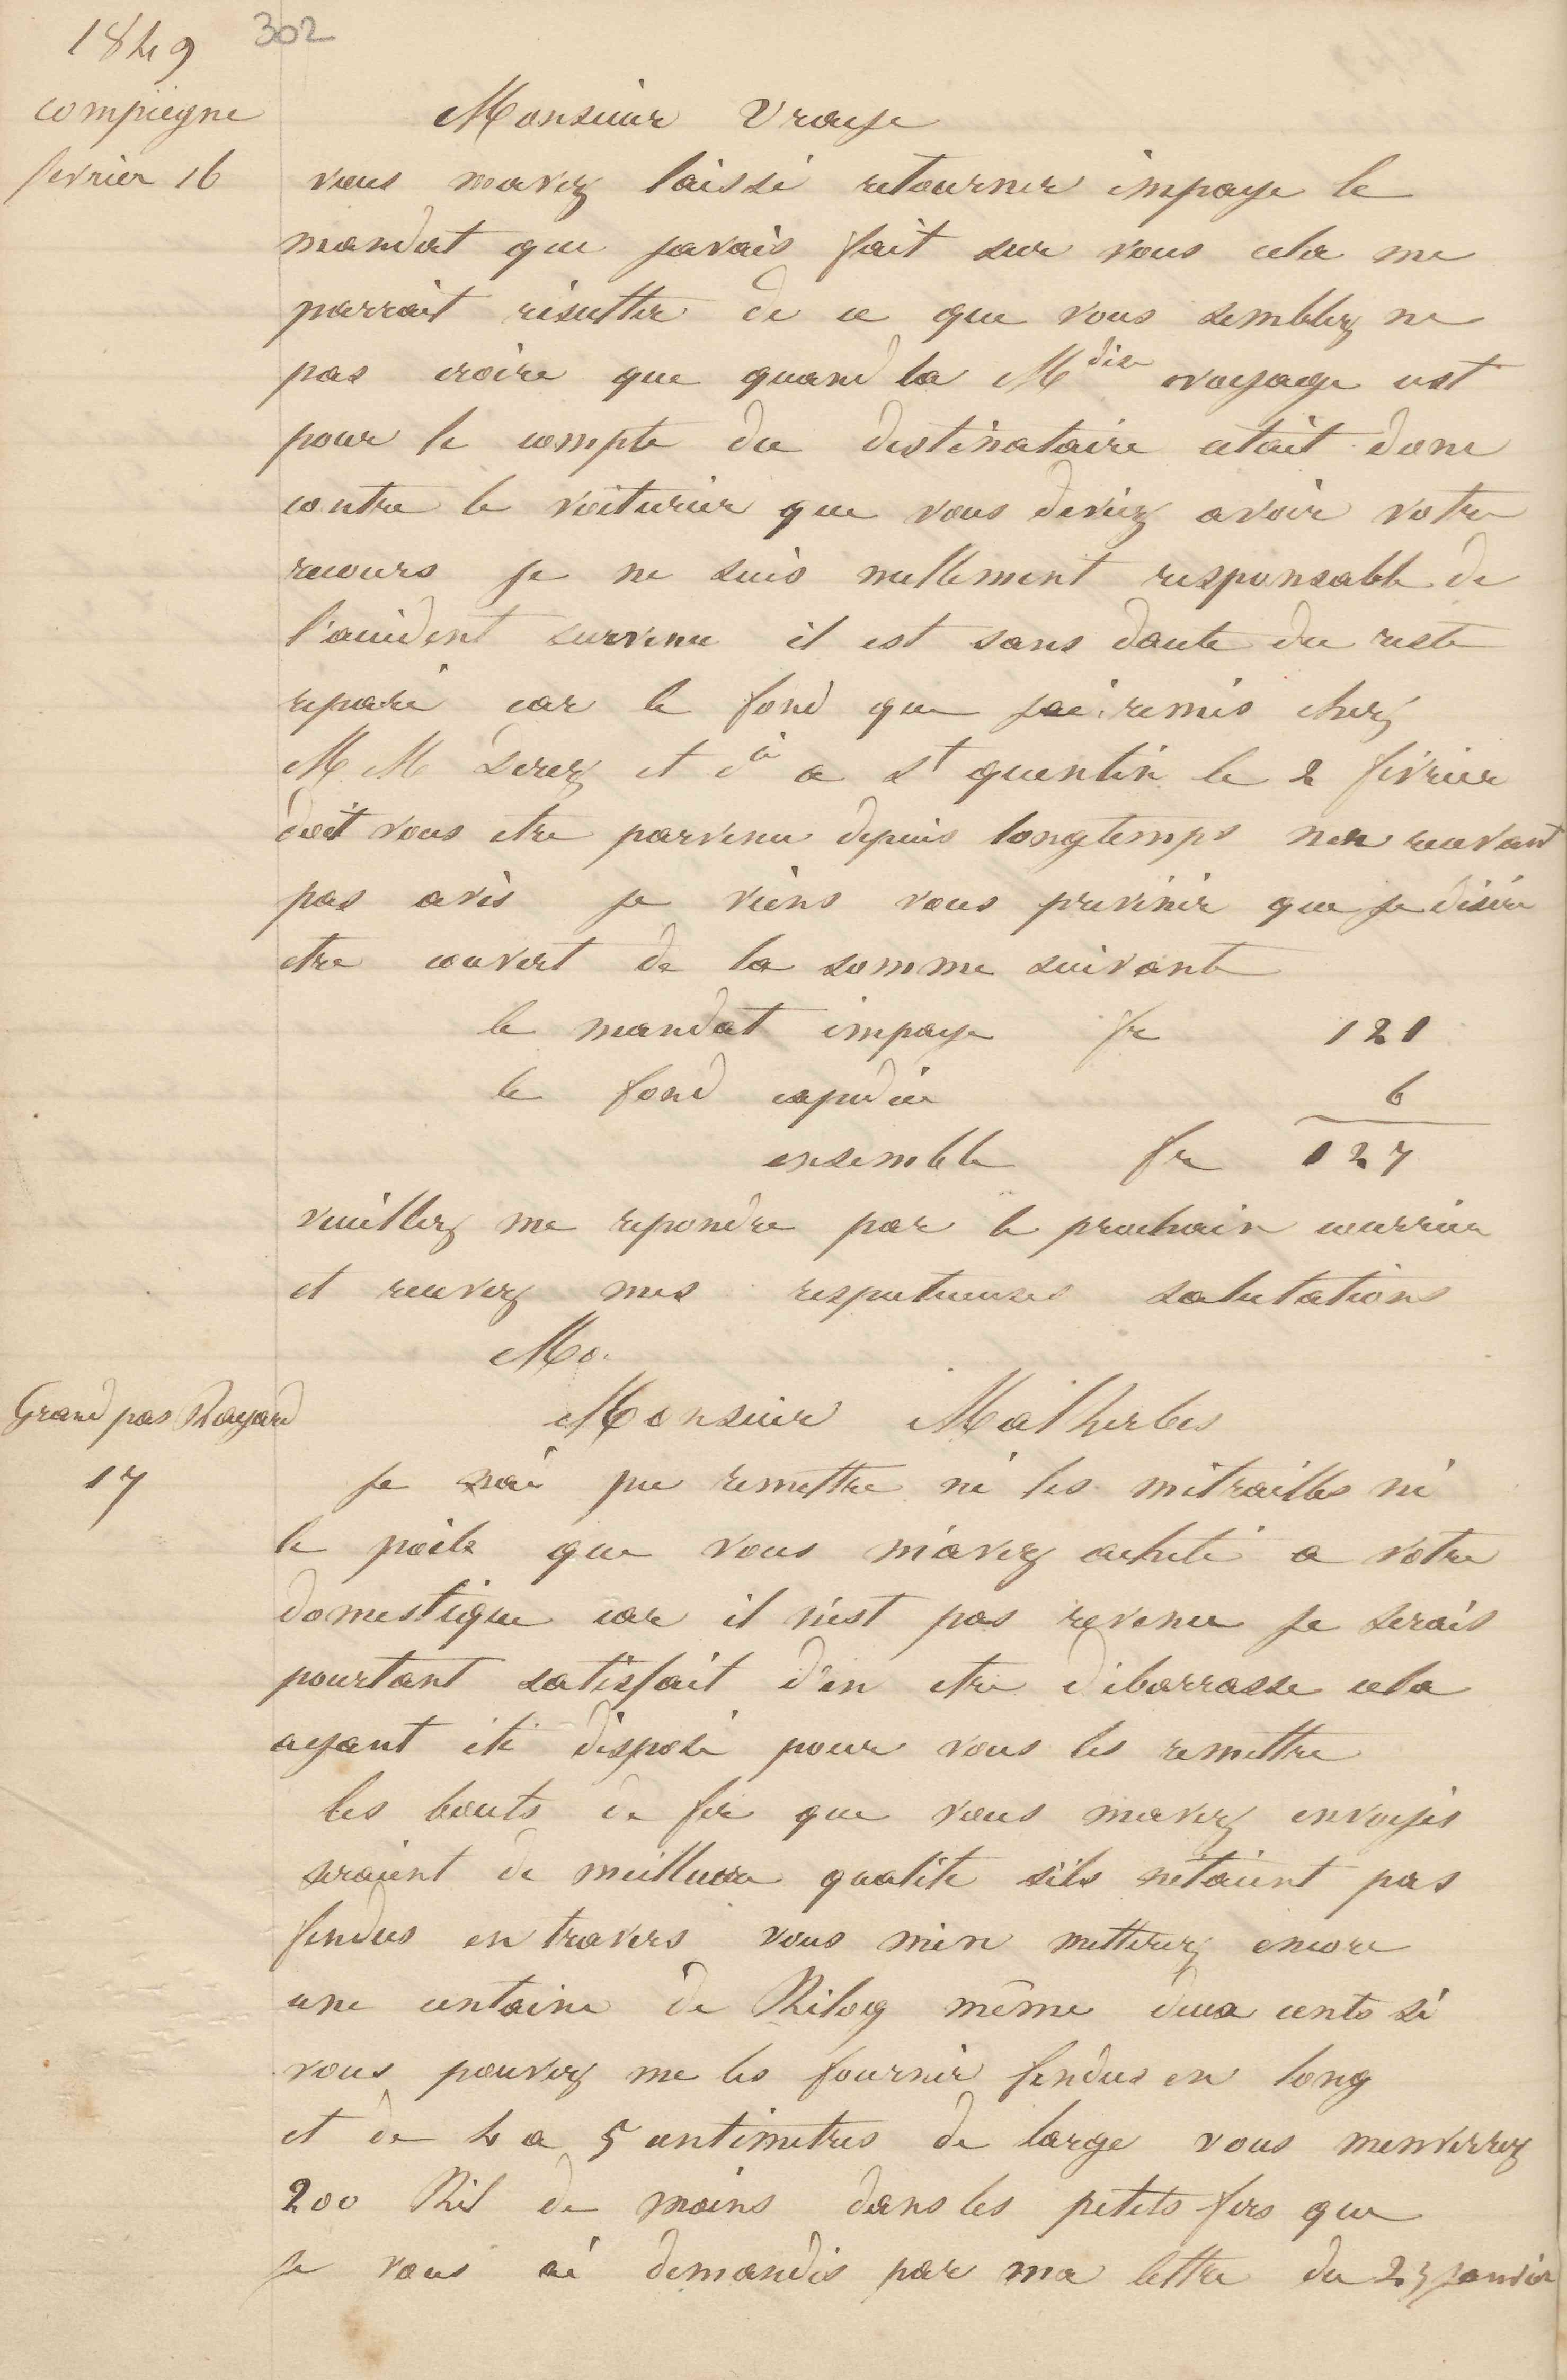 1849 302
compiegne
fevrier 16
Monsieur Vraye
vous mavez laissé retourner impaye le
mandat que javais fait sur vous cela me
parrait résulter de ce que vous semblez ne
pas croire que quand la Mdise voyage est
pour le compte du destinataire cetait donc
contre le voiturier que vous deviez avoir votre
recours je ne suis nullement responsable de
l'accident survenu il est sans doute du reste
reparé car le fond que jai remis chez
M M et a St quentin le 2 février
doit vous etre parvenu depuis longtemps nen recevant
pas avis je viens vous prévinir que je désire
etre couvert de la somme suivante
le mandat impaye fr 121
le fond expedié 6
ensemble fr 127
veuillez me repondre par le prochain courrier
et recevez mes respectueuses salutations
Mo.
Grand pas Bayard
17
Monsieur Malherbes
je nai pu remettre ni les mitrailles ni
le poile que vous m'avez acheté a votre
domestique car il n'est pas revenu je serais
pourtant satisfait d'en etre débarrasse cela
ayant été disposé pour vous les remettre
les bouts de fer que vous mavez envoyés
seraient de meilleure qualité s'ils nétaient pas
fendus en travers vous m'en metterez encore
une centaine de Kilog même deux cents si
vous pouvez me les fournir fendus en long
et de 4 a 5 centimetres de large vous menverrez
200 Kil de moins dans les petits fers que
je vous ai demandés par ma lettre du janvier